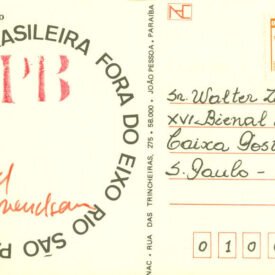 BRASILEIRA FORA DO EIXO RIO SÃO P
PB
NAC • RUA DAS TRINCHEIRAS, 275 • 58.000 • JOÃO PESSOA, PARAÍBA
Sr. Walter
XVI-Bienal
Caixa Post
S. Paulo -
0 1 0